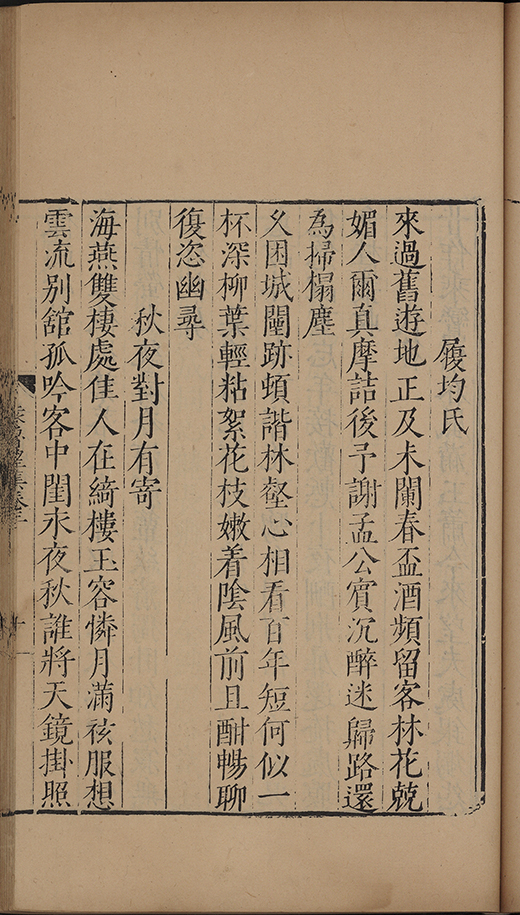 履均氏
來過舊遊地正及未闌春盃酒頻留客林花兢
媚人爾真摩詰後予謝孟公賓沉醉迷歸路還
為掃榻塵
久困城闉跡頓諧林壑心相看百年短何似一
杯深柳葉輕粘絮花枝嫩着陰風前且酣暢聊
復恣幽尋
秋夜對月有寄
海燕雙棲處佳人在綺樓玉容憐月滿袨服想
雲流別舘孤吟客中閨永夜秋誰將天鏡掛照